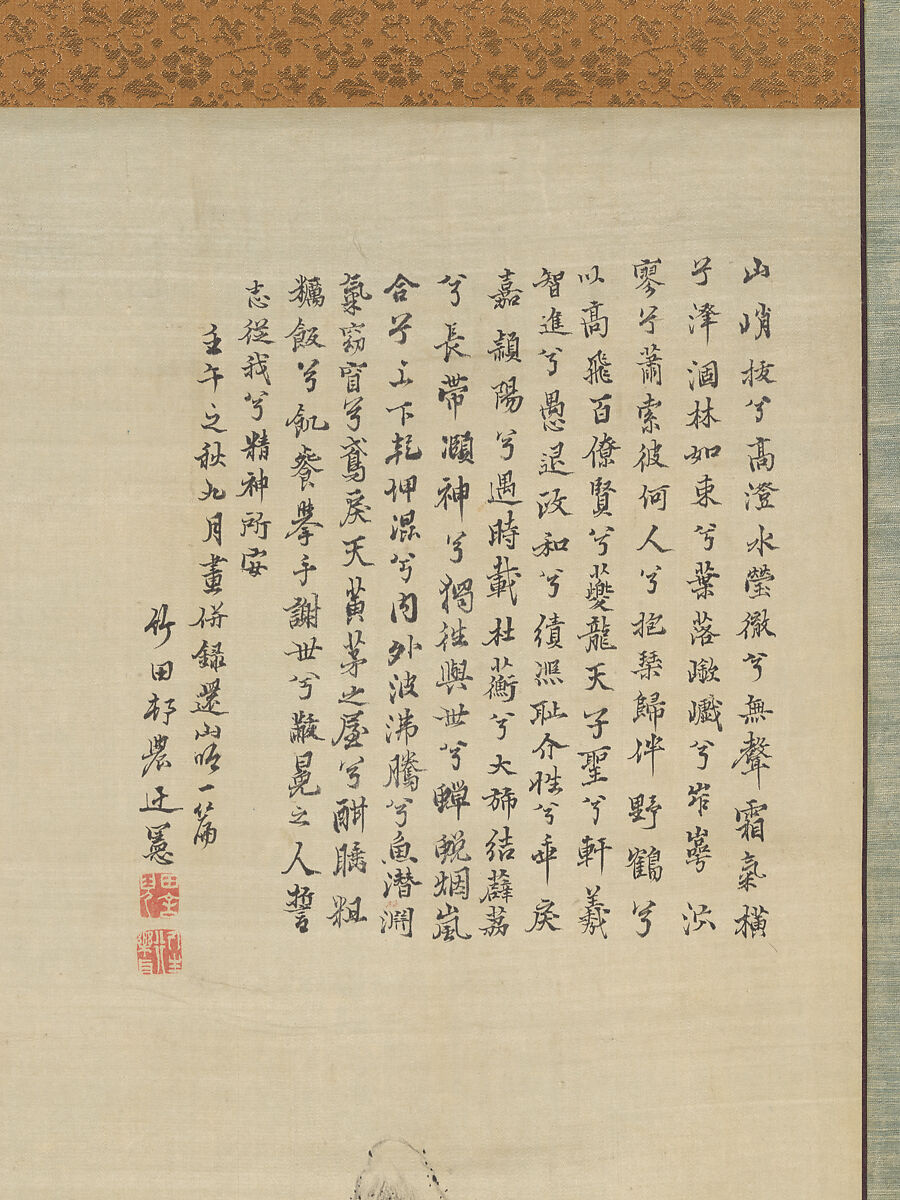 山峭拔兮高澄水瑩徹兮無聲霜氣橫
兮澤涸林如束兮葉落巘兮崒 泬
寥兮蕭索彼何人兮抱琹歸伴野鶴兮
以高飛百僚賢兮夔龍天子聖兮軒羲
智進兮愚退政和兮績熙耻介性兮乖戾
嘉潁陽兮遇時載杜蘅兮大旆結薜荔
兮長帶灝神兮獨往與世兮蟬蛻烟嵐
合兮上下乾坤混兮內外波沸騰兮魚潛淵
氣窈窅兮鳶戾天黃茅之屋兮酣 粗
糲飯兮飢餐擧手謝世兮黻冕之人誓
志從我兮精神所安
壬午之秋九月畫併録還山吟一篇
竹田邨農 憲